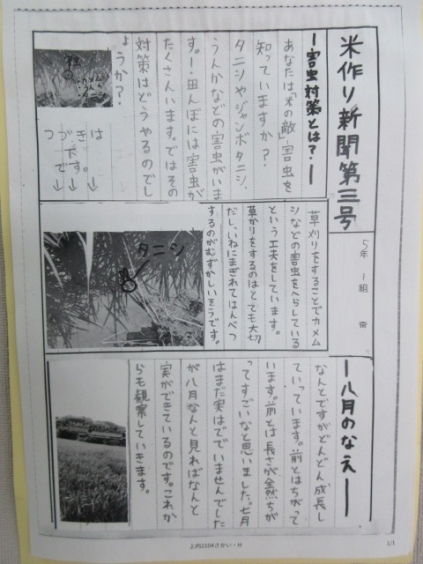 米作り新聞第三号
5年 1組
ー害虫対策とは?ー
あなたは「米の敵」害虫を
知っていますか?
タニシやジャンボタニシ、
うんかなどの害虫がいま
す。一田んぼには害虫が
たくさんいます。ではその
対策はどうやるのでし
ょうか?
つづきは
下
です。
↓↓↓
草刈りをすることでカメム
シなどの害虫をへらしている
という工夫をしています。
草かりをするのはとても大切
だし、いねにまぎれてはんべつ
するのがむずかしいそうです。
タニシ
ー八月のなえー
なんとですがどんどん成長し
ていっています。前とはちがって
います。前とは長さが全然ちが
ってすごいなと思いました。七月
はまだ実はでていませんでした
が八月なんと見ればなんと
実ができているのです。これか
らも観察していきます。
1/1